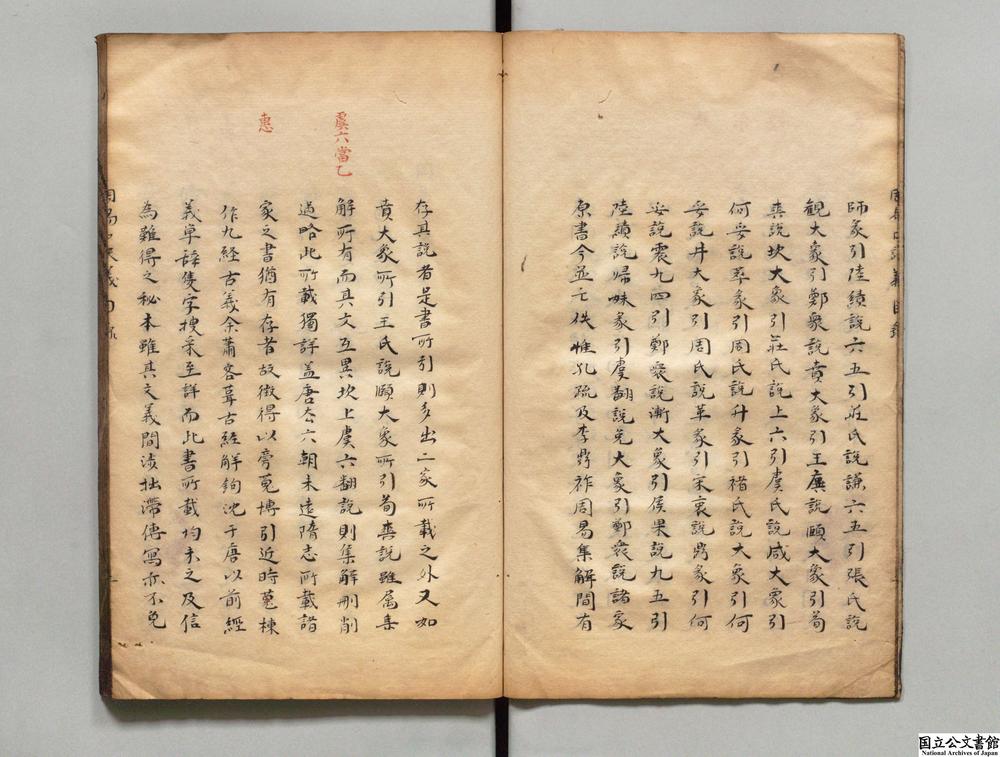 師彖引陸績說六五引莊氏說謙六五引張氏說
觀大象引鄭衆說賁大象引王廙說頤大象引荀
爽說坎大象引莊氏說上六引虞氏說咸大象引
何妥說萃彖引周氏說升彖引褚氏說大象引何
妥說井大象引周氏說革彖引宋衷說鼎彖引何
妥說震九四引鄭衆說漸大象引侯果說九五引
陸績說歸妹彖引虞翻說兌大象引鄭衆說諸家
原書今並亡佚惟孔疏及李鼎祚周易集解間有
存其說者是書所引則多出二家所載之外又如
賁大象所引王氏說頤大象所引荀爽說雖屬集
解所有而其文互異坎上虞六翻說則集解刪削
過略此所載獨詳盖唐去六朝未遠隋志所載諸
家之書猶有存者故徵得以旁蒐博引近時蕙棟
作九経古義余蕭客葺古経解鉤沈于唐以前經
義单辞隻字搜采至詳而此書所載均未之及信
為難得之秘本雖其文義間涉拙滯傳寫亦不免
虞六當乙
惠
国立公文書館
National Archives of Japan